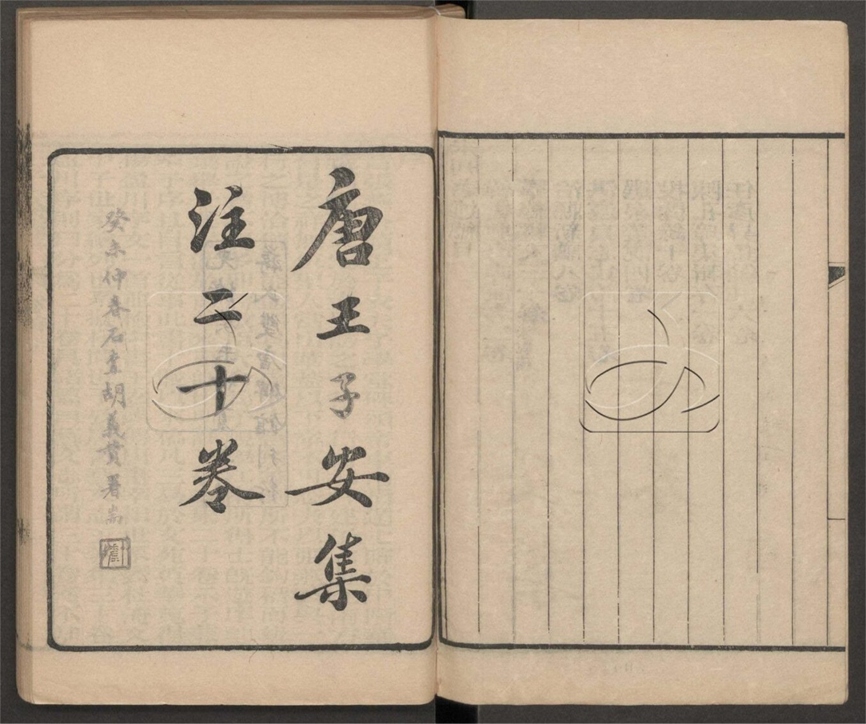 唐王子安集
注二十卷
癸未仲春石查胡義贊署耑